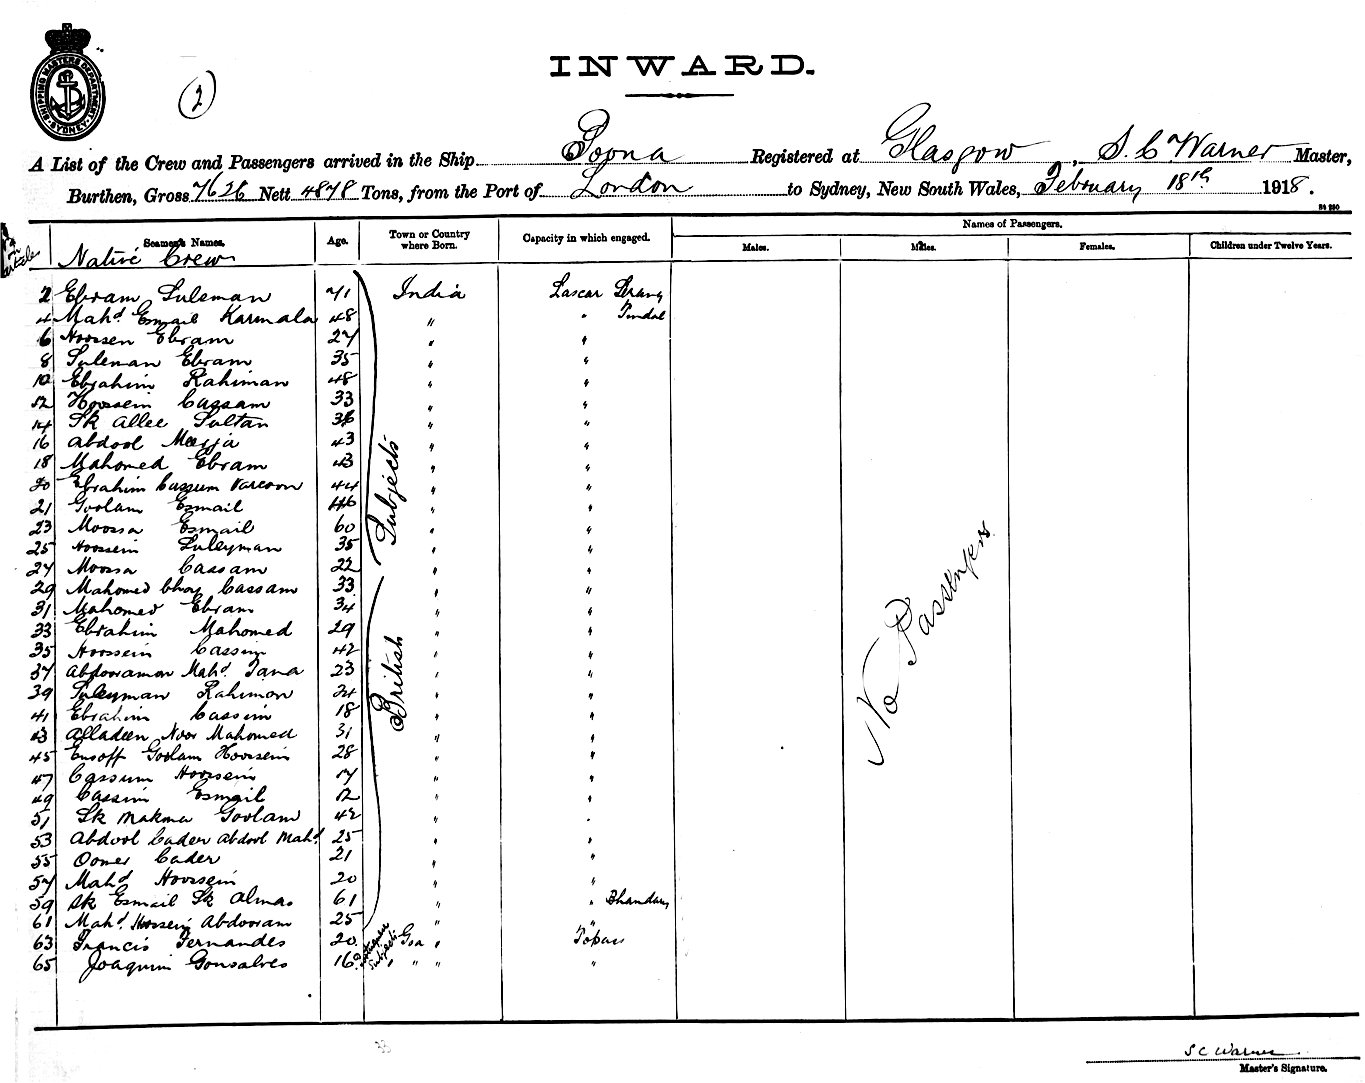 SHIPPING MASTERS DEPARTMENT SYDNEY
(2)
INWARD.
A List of the Crew and Passengers arrived in the Ship Poona Registered at Glasgow, S. C. Warner Master,
Burthen, Gross 7626 Nett 4878 Tons, from the Port of London to Sydney, New South Wales, February 18th 1918.
Names of Passengers.
on articles Seamen's Names. Age. Town or Country where Born. Capacity in which engaged. Males. Males. Females. Children under Twelve Years.
Native Crew
2 Ebram Suleman 71 India Lascar Serang
4 Mahd Esmail Karmala 48 " " Tindal
6 Hoosen Ebram 27 " "
8 Suleman Ebram 35 " "
10 Ebrahim Rahiman 48 " "
12 Hoossein Cassam 33 " "
14 Sk Allee Sultan 36 " "
16 Abdool 43 " "
18 Mahomed Ebram 43 " "
20 Ebrahim Cassum 44 " "
21 Goolam Esmail 46 " "
23 Moossa Esmail 60 " "
25 Hoossein Suleyman 35 " "
27 Moosa Cassam 22 " "
29 Mahomed bhoy Cassam 33 " "
31 Mahomed Ebram 34 " "
33 Ebrahim Mahomed 29 " "
35 Hoossein Cassim 42 " "
37 Abdooramon Mahd. Jana 23 " "
39 Suleyman Rahimon 24 " "
41 Ebrahim Cassim 18 " "
43 Alladeen Noor Mahomed 31 " "
45 Eusoff Goolam Hoossein 28 " "
47 Cassum Hoossein 17 " "
49 Cassim Esmail 12 " "
51 Sk Makma Goolam 42 " "
53 Abdool Cader Abdool Mahd. 25 " "
55 Oomer Cader 21 " "
57 Mahd Hoossein 20 " "
59 Sk Esmail Sk Almas 61 " " Bhandary
61 Mahd. Hoossein Abdooram 25 " "
63 Francis Fernandes 20 Goa " Topass
65 Joaquim Gonsalves 16 " " "
British Subjects
Portuguese Subjects
No Passengers
33
S C Warner
Master's Signature.